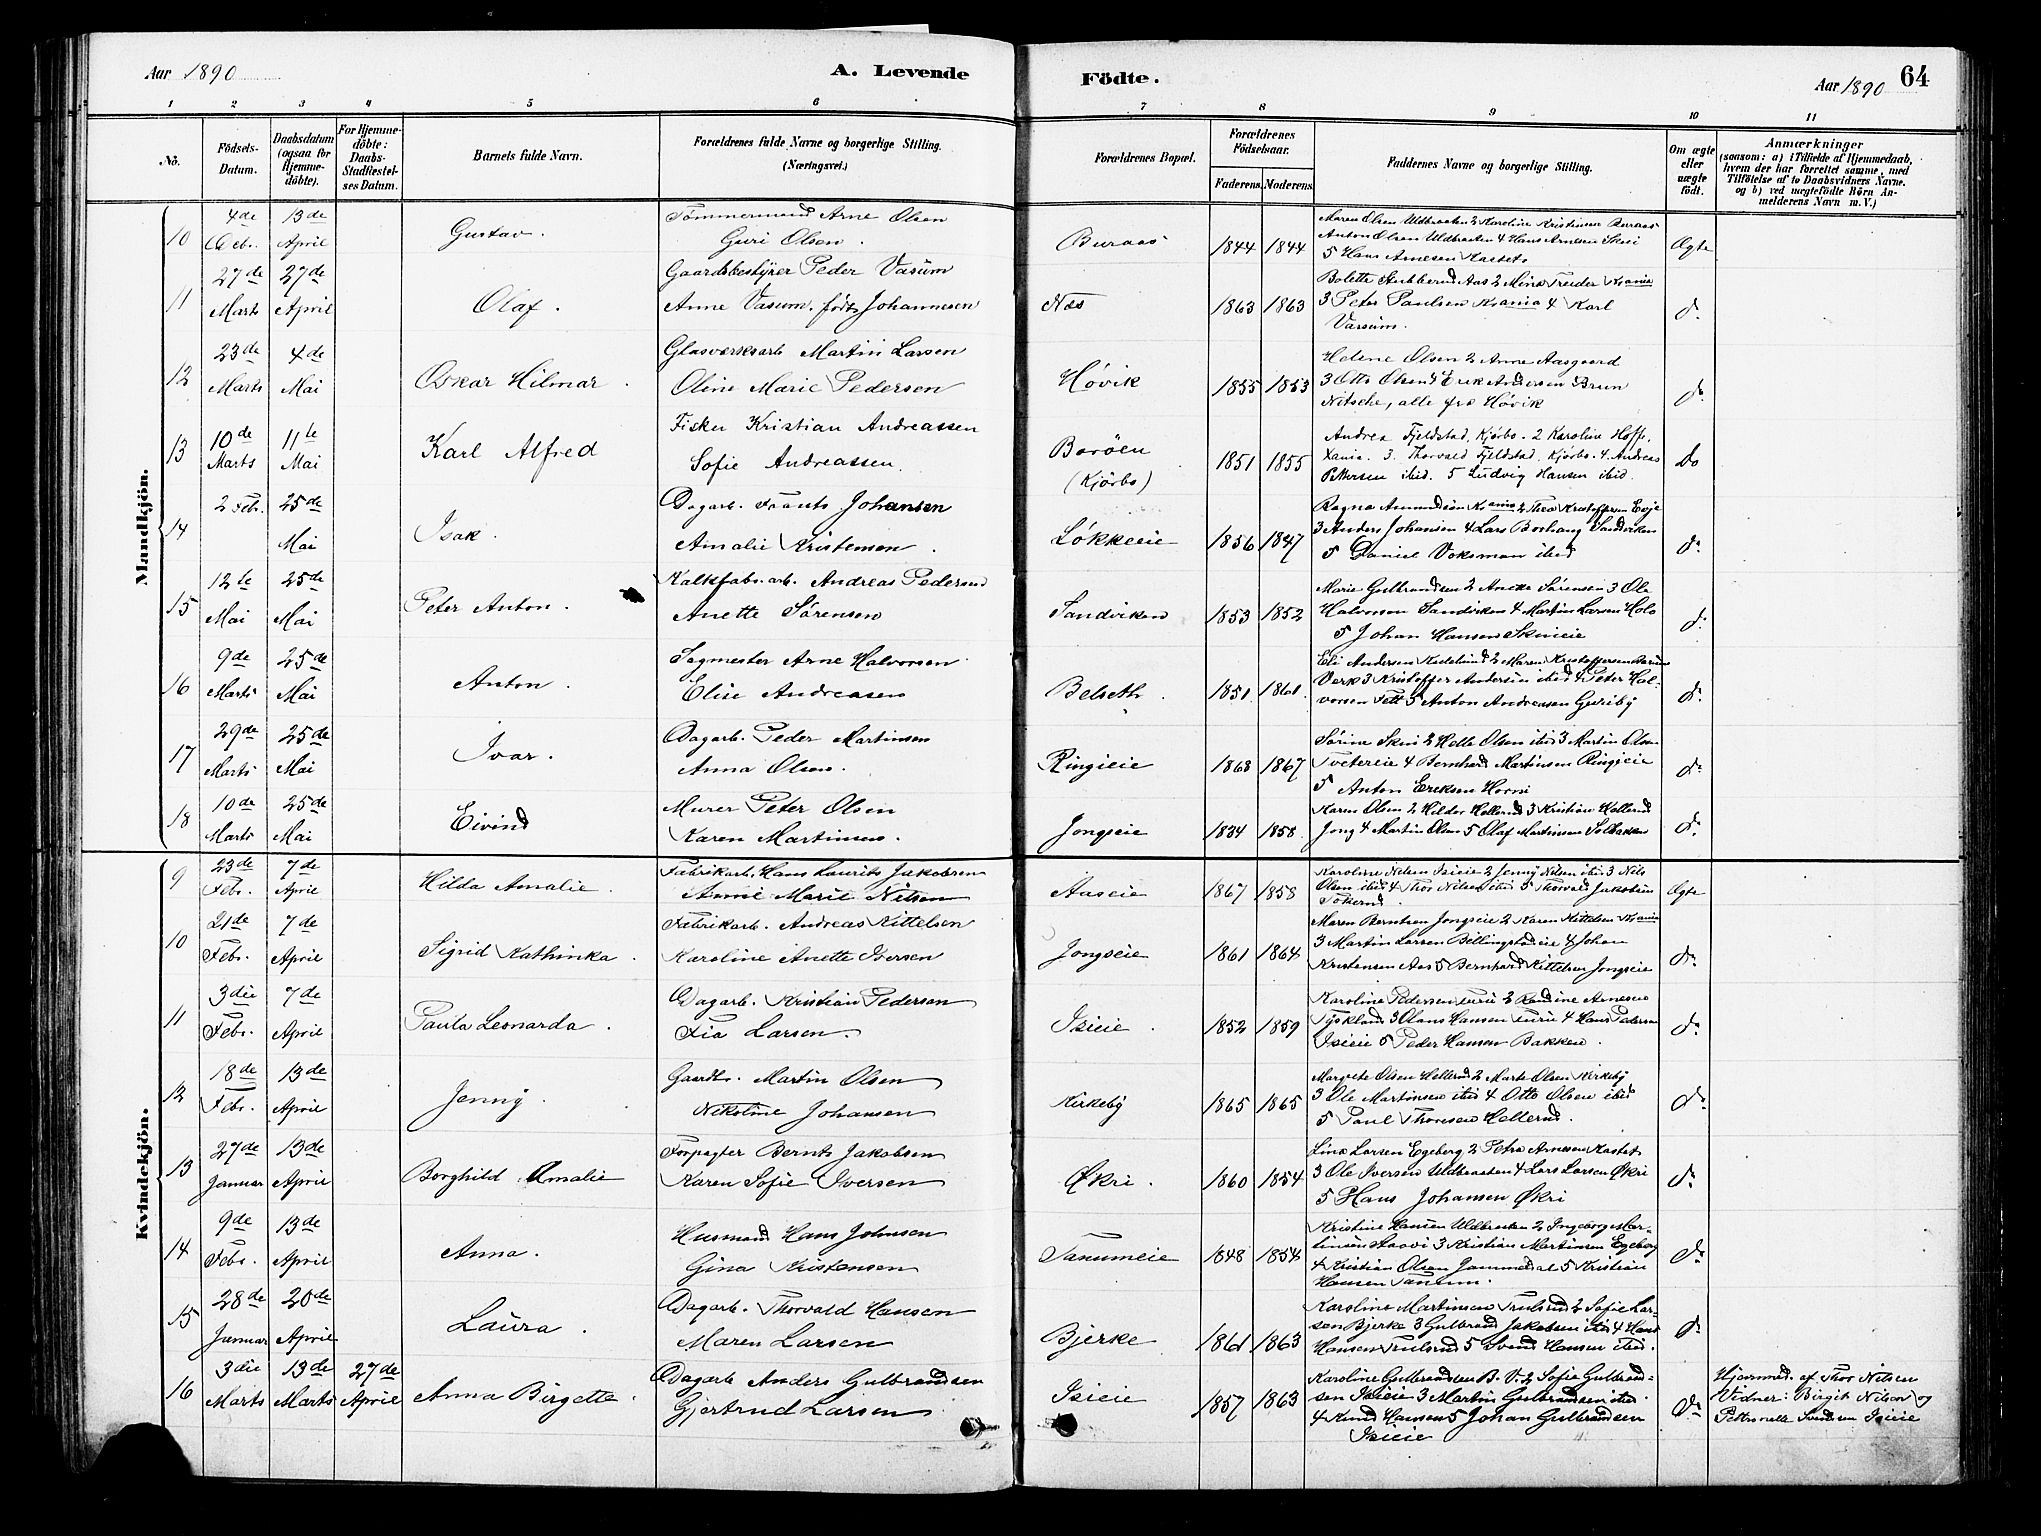 Aar 1890
A. Levende
Födte.
Aar 1890
64
1 2 3 4 5 6 7 8 9 10 11
No.
Födsels-
Datum.
Daabsdatum
(ogsaa for
Hjemme-
döbte).
For Hjemme-
döbte:
Daabs-
Stadfæstel-
ses Datum.
Barnets fulde Navn.
Forældrenes fulde Navne og borgerlige Stilling.
(Næringsvei.)
Forældrenes Bopæl.
Forældrenes
Födselsaar.
Faderens. Moderens.
Faddernes Navne og borgerlige Stilling.
Om ægte
eller
uægte
födt.
Anmærkninger
(saasom: a) i Tilfælde af Hjemmedaab,
hvem der har forrettet samme, med
Tilföielse af to Daabsvidners Navne,
og b) ved uægtefödte Börn An-
melderens Navn m. V.)
Mandkjön.
10
4de Febr.
13de April
Gustav.
Tømmermand Arne Olsen
Guri Olsen.
Buraas
1844 1844
Maren Olsen Uldbraaten 2 Karoline Kristiansen Buraas
Anton Olsen Uldbraaten 4 Hans Arnesen Skui
5 Hans Arnesen Kastet
Ægte
11
27de Marts
27de April
Olaf.
Gaardsbestyrer Peder Vasum
Anne Vasum, født Johannesen
Næs
1863 1863
Bolette Stubberud Aas 2 Mina Treider Krania
3 Peter Paulsen Krania 4 Karl
Vasum.
do
12
23de Marts
4de Mai
Oskar Hilmar.
Glasverksarb. Martin Larsen
Oline Marie Pedersen
Høvik
1855 1853
Helene Olsen 2 Anne Aasgaard
3 Otto Olsen 4 Erik Andersen Brun
Nitsche, alle fra Høvik
do
13
10de Marts
11te Mai
Karl Alfred
Fisker Kristian Andreassen
Sofie Andreassen.
Borøen
(Kjørbo)
1851 1855
Andrea Fjeldstad, Kjørbo. 2 Karoline Hoff,
Xania. 3. Thorvald Fjeldstad, Kjørbo. 4. Andreas
Pettersen ibid. 5 Ludvig Hansen ibid.
Do
14
2 Febr.
25de Mai
Isak.
Dagarb. Frants Johansen
Amalie Kristensen.
Løkkeeie
1856 1847
Ragna Amundsen Krania 2 Thea Kristoffersen Evje
3 Anders Johansen 4 Lars Borhaug Sandviken
5 Daniel Voksman ibid
do
15
12te Mai
25de Mai
Peter Anton.
Kalkfabr.arb. Andreas Pedersen
Anette Sørensen
Sandviken
1853 1852
Marie Gulbrandsen 2 Anette Sørensen 3 Ole
Halvorsen Sandviken 4 Martin Larsen Holo
5 Johan Hansen Skuieie
do
16
9de Marts
25de Mai
Anton.
Sagmester Arne Halvorsen
Elise Andreasen
Belseth.
1851 1861.
Eli Andersen 2 Maren Kristoffersen Bærums
Verk 3 Kristoffer Andersen ibid 4 Peter Hal-
vorsen Tett 5 Anton Andreasen Guriby
do
17
29de Marts
25de Mai
Ivar.
Dagarb. Peder Martinsen
Anna Olsen.
Ringieie
1868 1867
Sørine Skui 2 Helle Olsen ibid 3 Martin Olsen
Tvetereie 4 Bernhard Martinsen Ringieie
5 Anton Eriksen Horni
do
18
10de Marts
25de Mai
Eivind
Murer Peter Olsen
Karen Martinsen.
Jongseie
1834 1858.
Karen Olsen 2 Hilder Hellerud 3 Kristian Hellerud
Jong 4 Martin Olsen 5 Olaf Martinsen Solbakken
do
Kvindekjön.
9
23de Febr.
7de April
Hilda Amalie.
Fabrikarb. Hans Laurits Jakobsen
Anne Marie Nilsen
Aaseie
1867 1858
Karoline Nilsen Isieie 2 Jenny Nilsen ibid 3 Nils
Olsen ibid 4 Thor Nilsen ibid 5 Thorvald Jakobsen
Tokerud.
Ægte
10
21de Febr.
7de April
Sigrid Kathinka.
Fabrikarb. Andreas Kittelsen
Karoline Anette Iversen
Jongseie
1861 1864
Maren Berntsen Jongseie 2 Karen Kittelsen Krania
3 Martin Larsen Billingstadeie 4 Johan
Kristensen Aas 5 Bernhard Kittelsen Jongseie
do
11
3die Febr.
7de April
Paula Leonarda.
Dagarb. Kristian Pedersen
Fia Larsen.
Isieie.
1852 1859
Karoline Pedersen 2 Randine Arnesen
Tyskland 3 Olaus Hansen 4 Hans Pedersen
Isieie 5 Peder Hansen Bakken.
do
12
18de Febr.
13de April
Jenny.
Gaardbr. Martin Olsen
Nikoline Johansen
Kirkeby
1865 1865
Margrete Olsen Hellerud 2 Marte Olsen Kirkeby
3 Ole Martinsen ibid 4 Otto Olsen ibid
5 Paul Thoresen Hellerud.
do
13
27de Januar
13de April
Borghild Amalie
Forpagter Bernt Jakobsen
Karen Sofie Iversen
Økri.
1860 1854
Lina Larsen Egeberg 2 Petra Arnesen Kastet
3 Ole Iversen Uldbraaten 4 Lars Larsen Økri
5 Hans Johansen Økri
do
14
9de Febr.
13de April
Anna.
Husmand Hans Johnsen
Gina Kristensen
Tanumeie
1848 1854
Kristine Hansen Uldbraaten 2 Ingeborg Mar-
tinsen Staavi 3 Kristian Martinsen Egeberg
4 Kristian Olsen Jammedal 5 Kristian
Hansen Tanum.
do
15
28de Januar
20de April
Laura.
Dagarb. Thorvald Hansen
Maren Larsen
Bjerke
1861 1863
Karoline Martinsen Trulsrud 2 Sofie Lar-
sen Bjerke 3 Gulbrand Jakobsen ibid 4 Hans
Hansen Trulsrud 5 Svend Hansen ibid.
do
16
3die Marts
13de Marts
27de April
Anna Birgette.
Dagarb Anders Gulbrandsen
Gjertrud Larsen
Isieie
1857 1863
Karoline Gulbrandsen B. V. 2 Sofie Gulbrand-
sen Isieie 3 Martin Gulbrandsen ibid
4 Knud Hansen 5 Johan Gulbrandsen
Isieie
do
Hjemmed. af Thor Nilsen
Vidner: Birgit Nilsen og
Pettronelle Svendsen Isieie